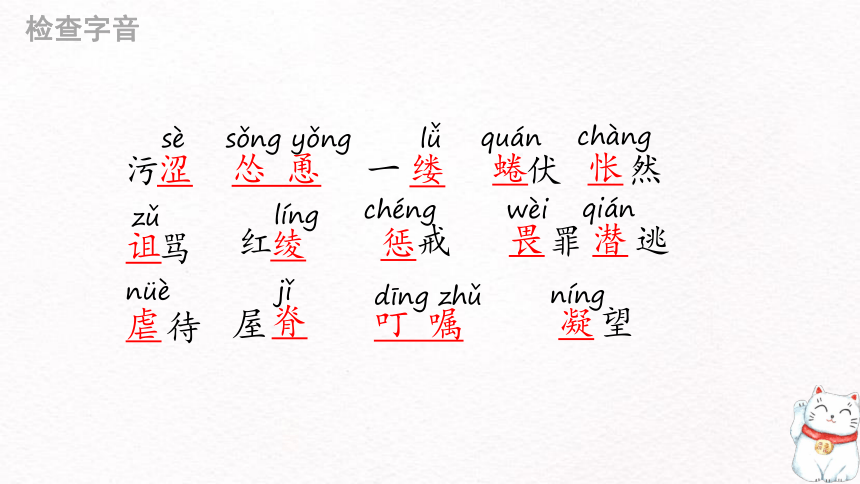 检查字音
sè sǒng yǒng lǚ quán chàng
污涩 怂恿 一缕 蜷伏 怅然
zǔ líng chéng wèi qián
诅骂 红绫 惩戒 畏罪潜逃
nüè jǐ dīng zhǔ níng
虐待 屋脊 叮嘱 凝望